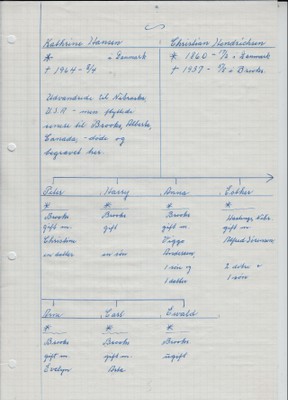 Kathrine Hansen
* i Danmark
† 1964 - 2/4
Christian Hendrichsen
* 1860 - i Danmark
† 1937 - i Brooks.
Udvandrede til Nebraska,
U.S.A - men flyttede
senere til Brooks, Alberta,
Canada, - døde og
begravet her.
Peter
*
Brooks
gift m.
Christine
en datter
Harry
*
Brooks
gift
en søn
Anna
*
Brooks
gift m.
Viggo
Andersen,
1 søn og
1 datter
Esther
*
Hastings, Nebr.
gift m.
Alfred Sörensen
2 døtre o
1 søn
*
Brooks
gift m.
Evelyn
Carl
*
Brooks
gift m.
Ewald
*
Brooks
ugift